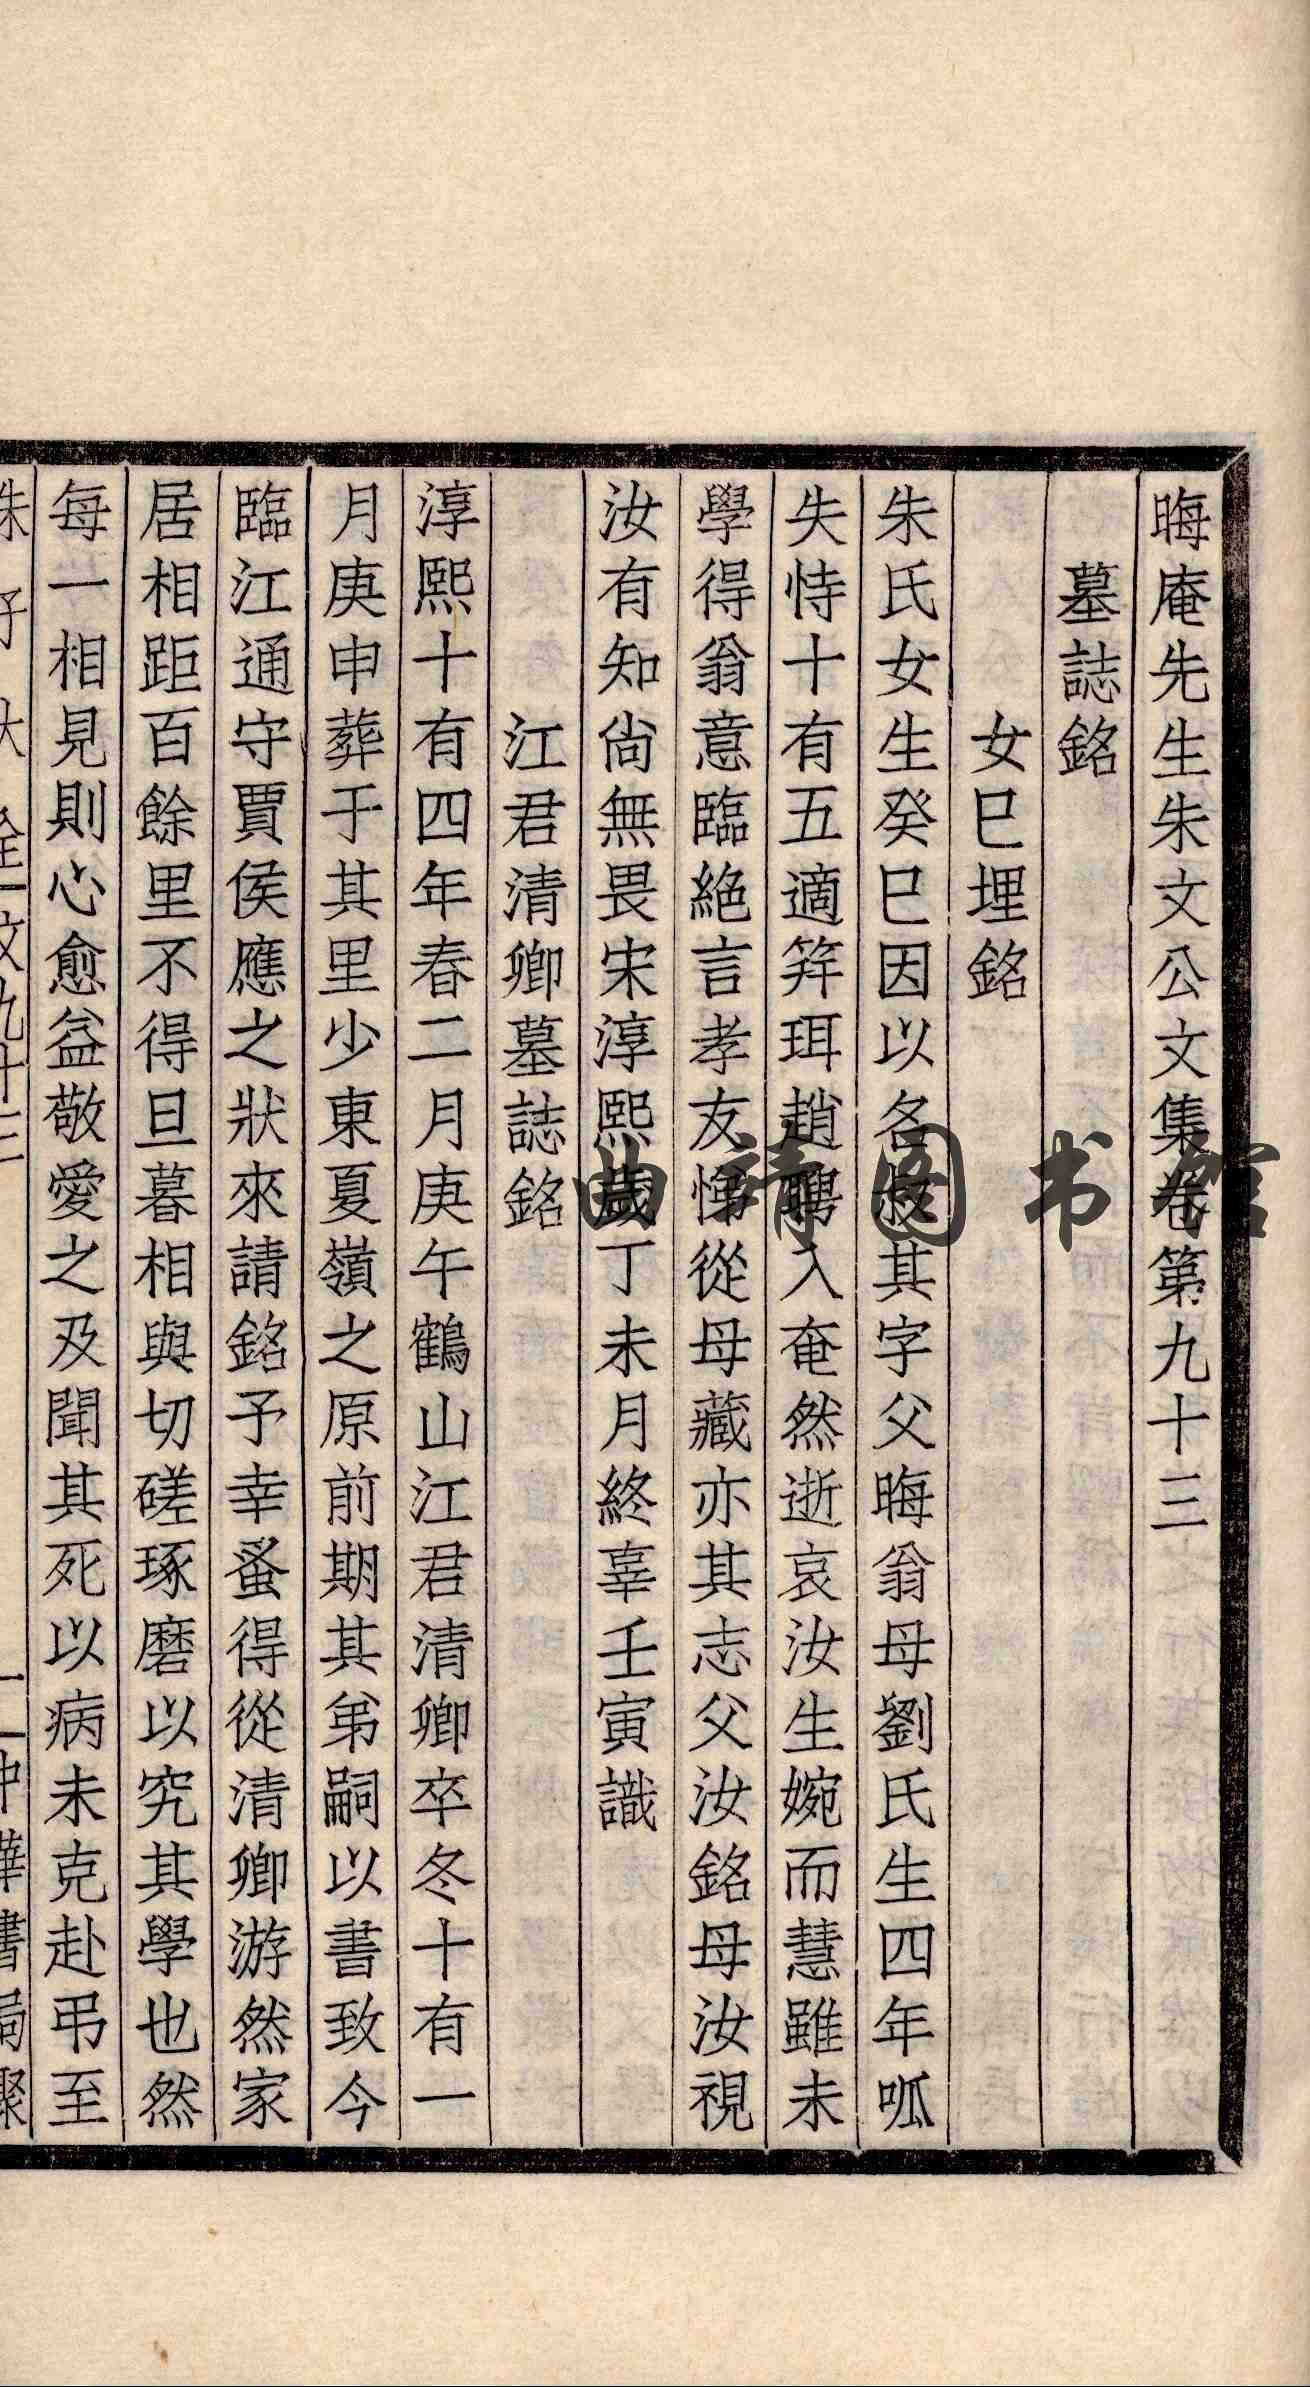 晦庵先生朱文公文集卷第九十三
墓誌銘
女巳埋銘
朱氏女生癸巳因以名叔其字父晦翁母劉氏生四年呱
失恃十有五適笄珥趙聘入奄然逝哀汝生婉而慧雖未
學得翁意臨絕言孝友悌從母藏亦其志父汝銘母汝視
汝有知尙無畏宋淳熙歲丁未月終辜壬寅識
江君清卿墓誌銘
淳熙十有四年春二月庚午鶴山江君清卿卒冬十有一
月庚申葬于其里少東夏嶺之原前期其弟嗣以書致今
臨江通守賈侯應之狀來請銘予幸蚤得從清卿游然家
居相距百餘里不得旦暮相與切磋琢磨以究其學也然
每一相見則心愈益敬愛之及聞其死以病未克赴弔至
曲靖图书馆